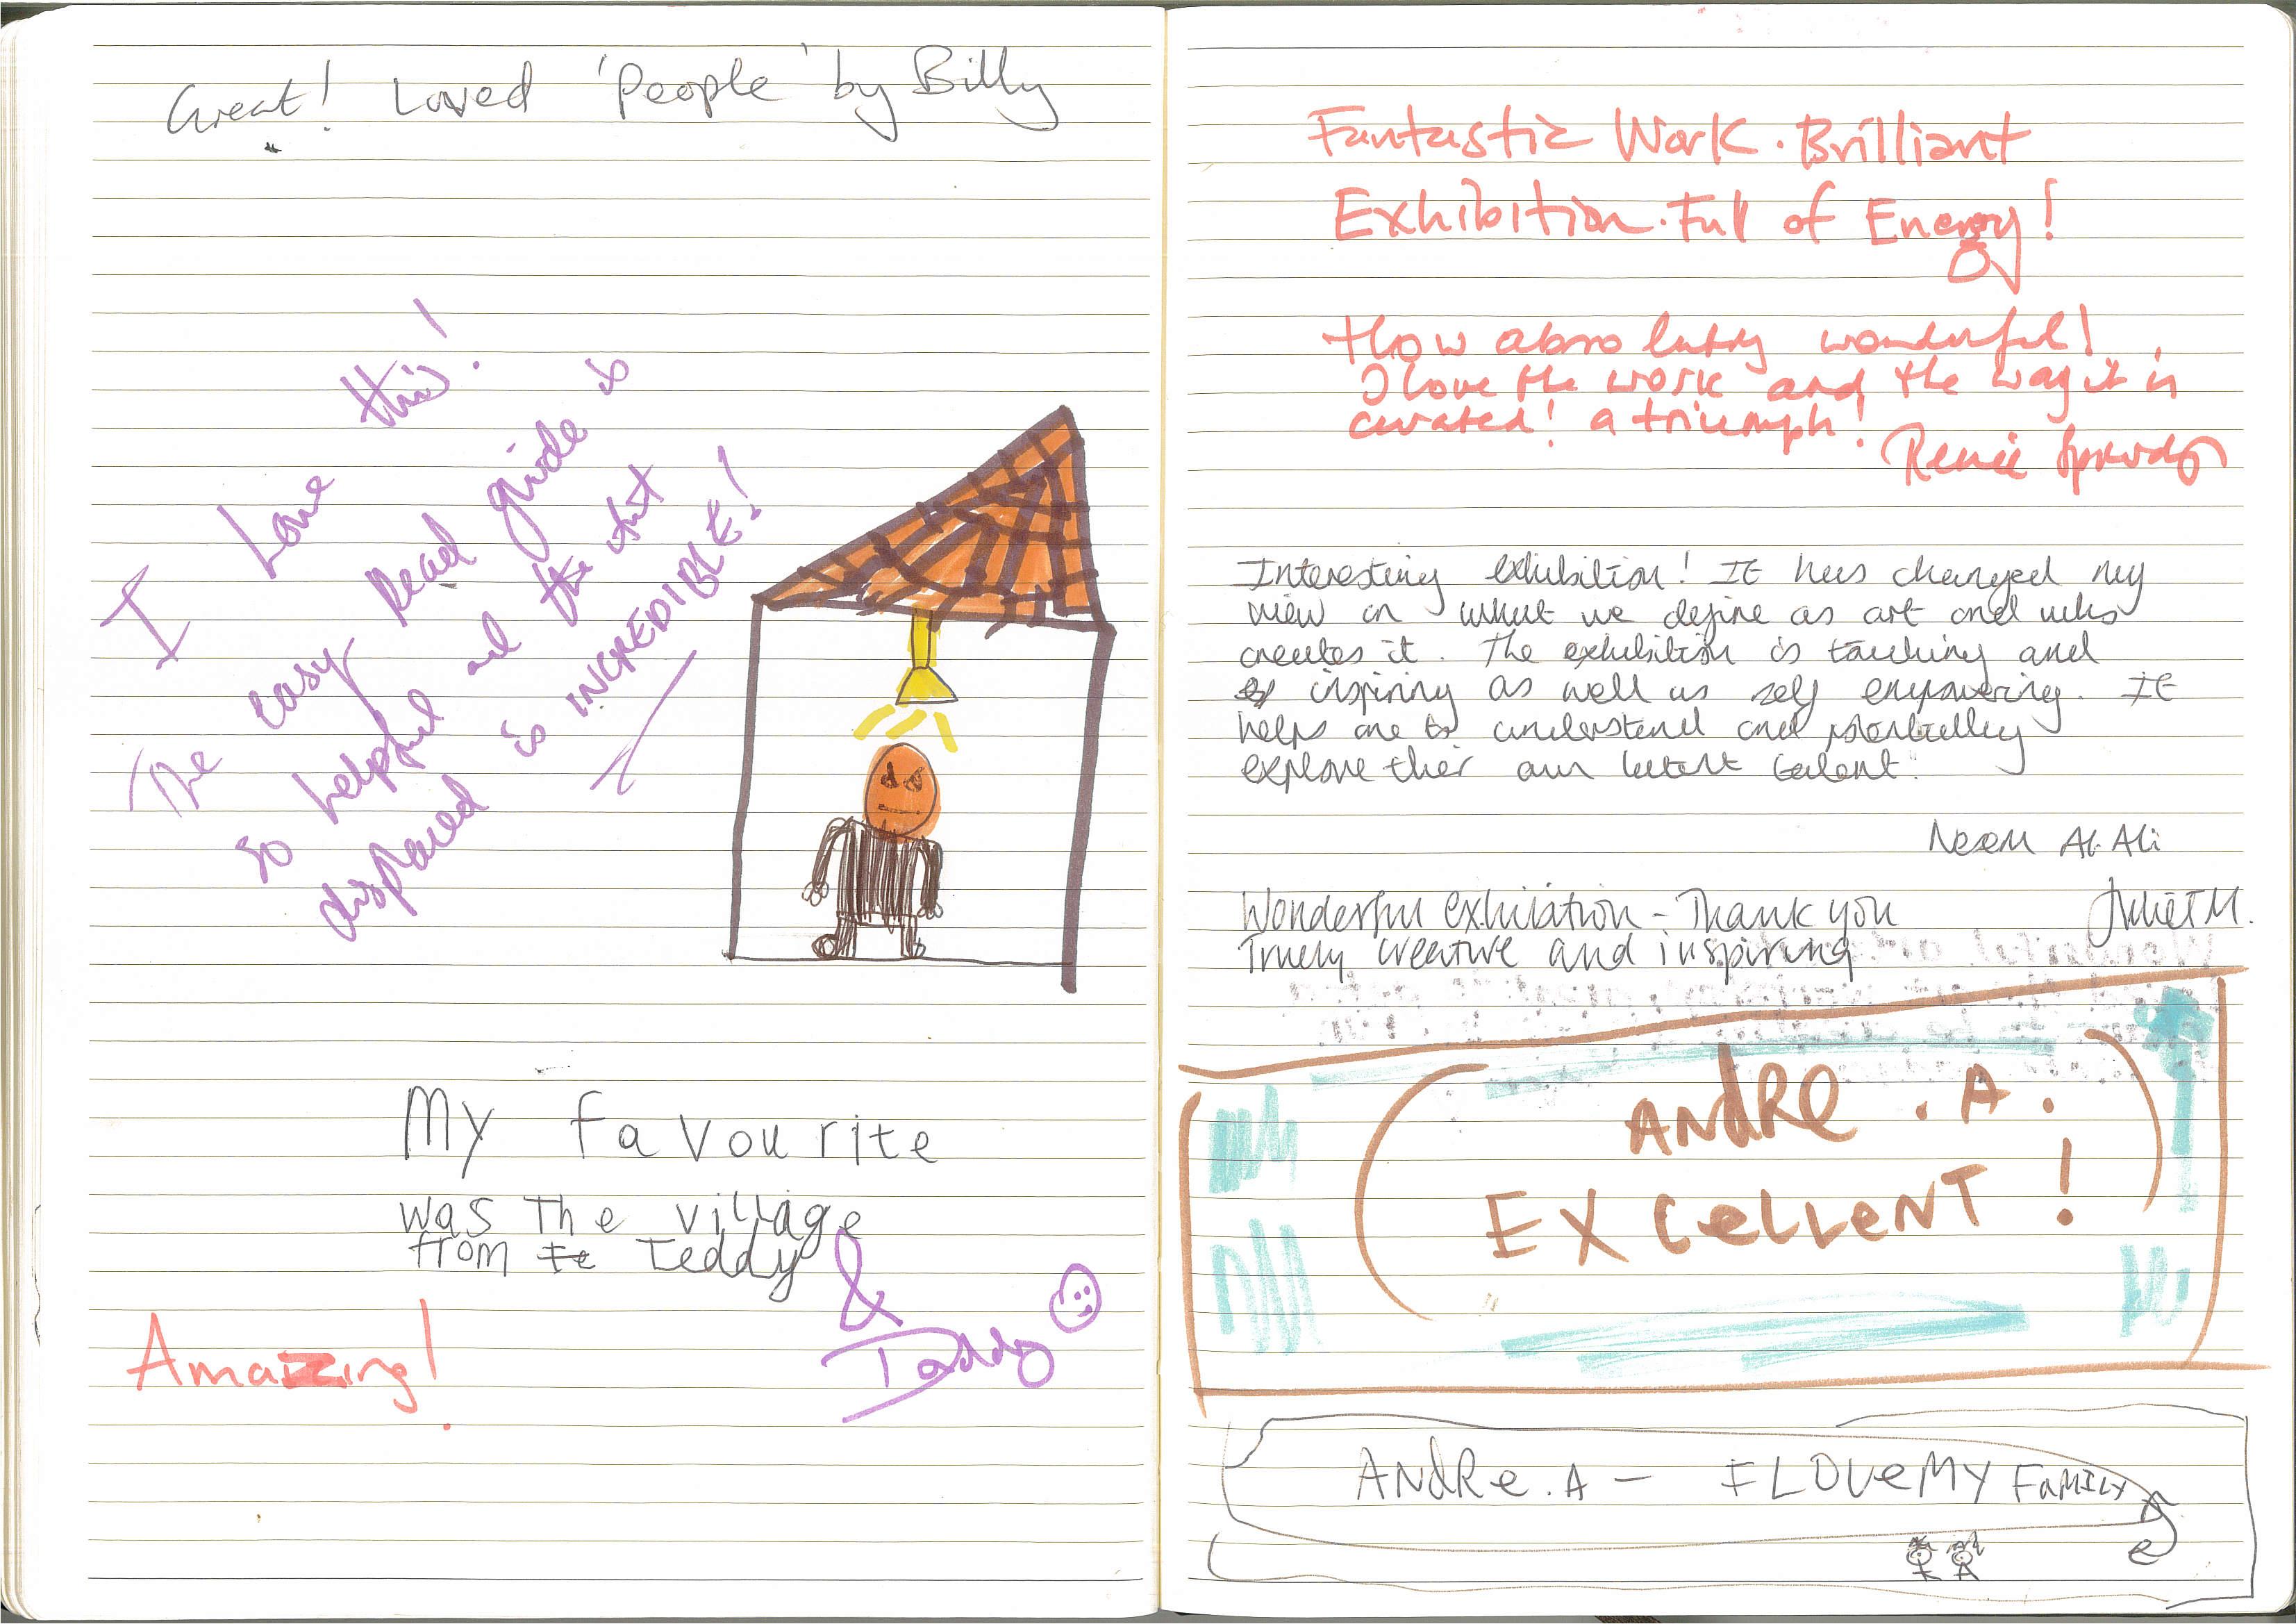 Great! Loved 'People' by Billy
I Love this!
The easy Read guide is
so helpful and the art
displaced is INCREDIBLE!
My favourite
was The village
from te Teddy
&
Daddy
Amazing!
Fantastic Work. Brilliant
Exhibition. Full of Energy!
How absolutely wonderful!
I love the work and the way it is
curated! a triumph!
Renée
Interesting exhibition! It has changed my
view on what we define as art and who
creates it. The exhibition is touching and
inspiring as well as self empowering. It
helps one to understand and potentially
explore their own latent talent.
Al Ali
Wonderful exhibition - Thank you
Juliet M.
Truely creative and inspiring
ANdRe . A .
EXCeLLeNT !
ANdRe . A - I LOVe MY FaMILY